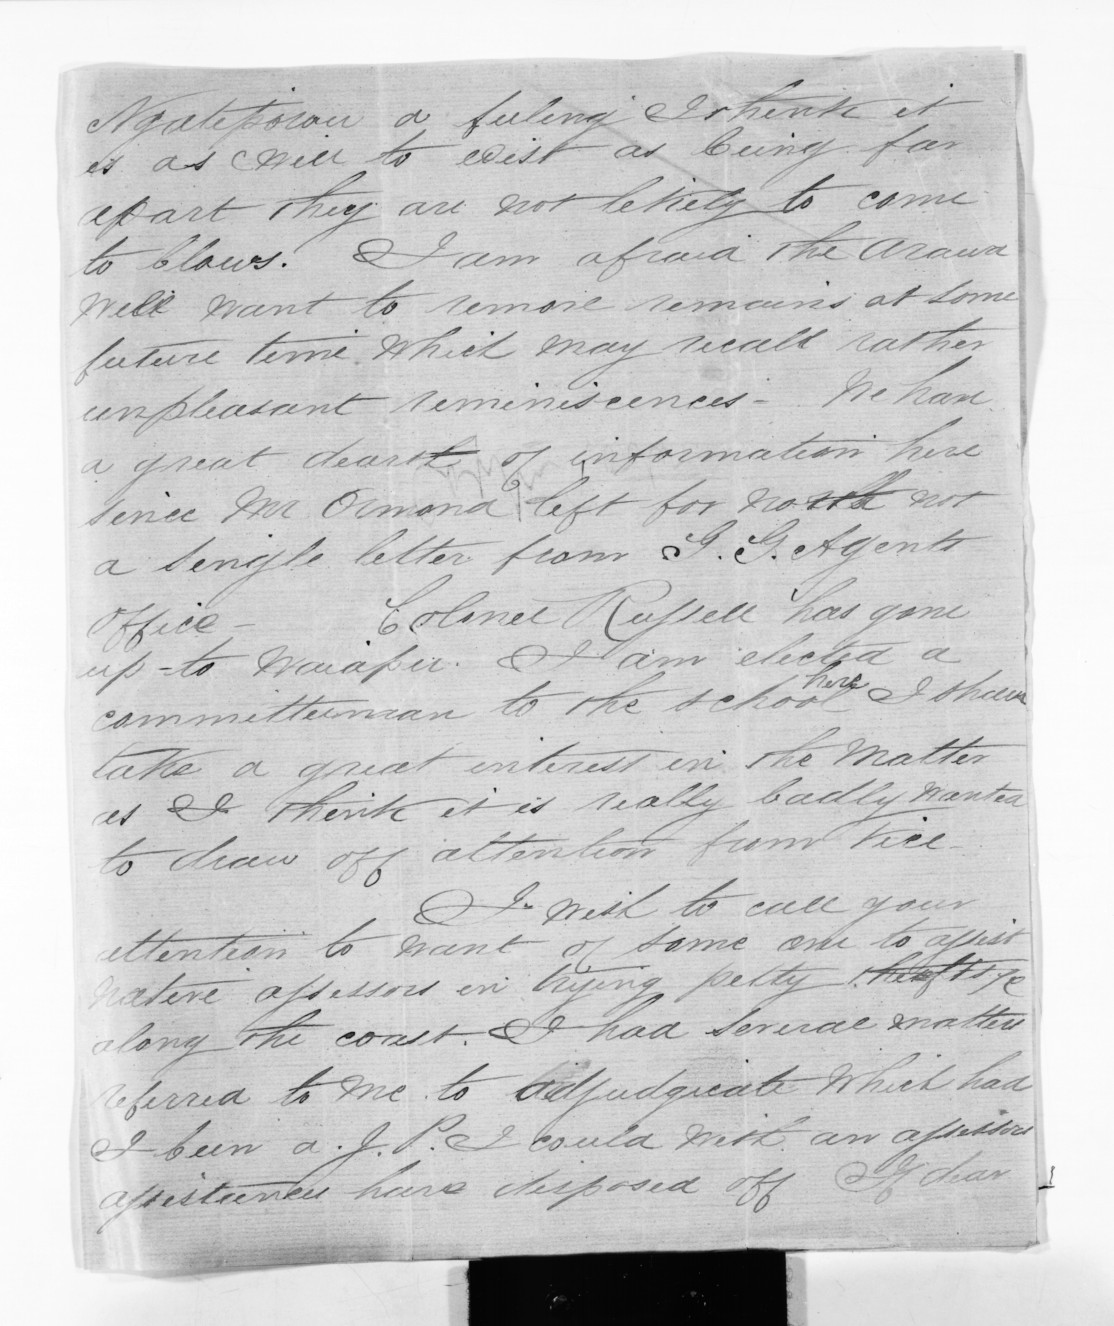 Ngatiporou a feeling I think it
is as well to exist as being far
apart they are not likely to come
to blows. I am afraid the Arawa
will want to remove remains at some
future time which may recall rather
unpleasant reminiscences - We have
a great dearth of information here
since Mr Ormond left for north not
a single letter from G. G. Agents
office - Colonel Russell has gone
up-to Waiapu. I am elected a
committeeman to the school here I shall
take a great interest in the matter
as I think it is really badly wanted
to draw off attention from vice -
I wish to call your
attention to want of some one to assist
native assessors in trying petty thefts &c
along the coast. I had several matters
referred to me to adjudgicate which had
I been a J. P. I could with an assessors
assistance have disposed off If dear